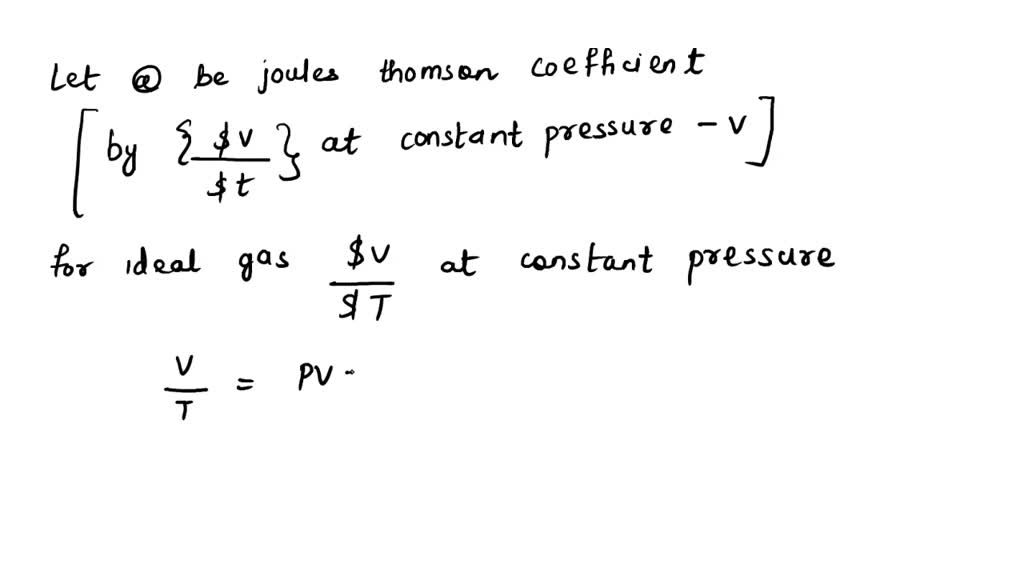 Let @ be joules thomson coefficient
[ by { $V / $t } at constant pressure - V ]
for ideal gas $V / $T at constant pressure
V / T = PV -